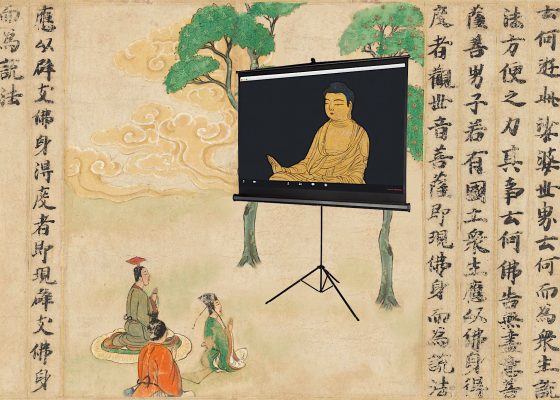 云何遊此娑婆世界云何而為衆生說
法方便之力其事云何佛告無盡意菩
薩善男子若有國土衆生應以佛身得
度者觀世音菩薩即現佛身而為說法
應以辟支佛身得度者即現辟支佛身
而為說法